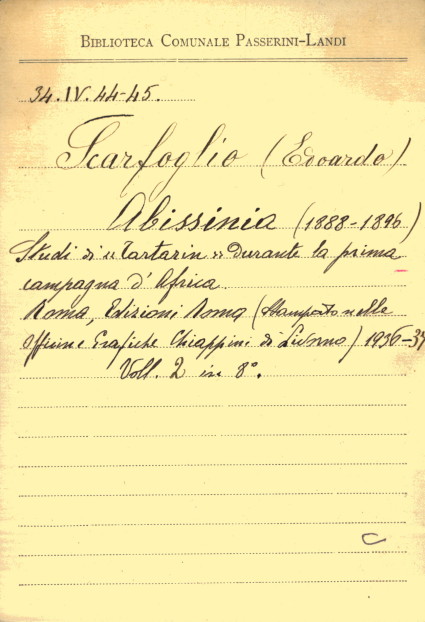 BIBLIOTECA COMUNALE PASSERINI-LANDI
34.IV.44-45.
Scarfoglio (Edoardo)
Abissinia (1888-1896)
Studi di «Tartarin» durante la prima
campagna d'Africa.
Roma, Edizioni Roma (Stampato nelle
Officine Grafiche Chiappini di Livorno) 1936-37
Voll. 2 in 8°.
C